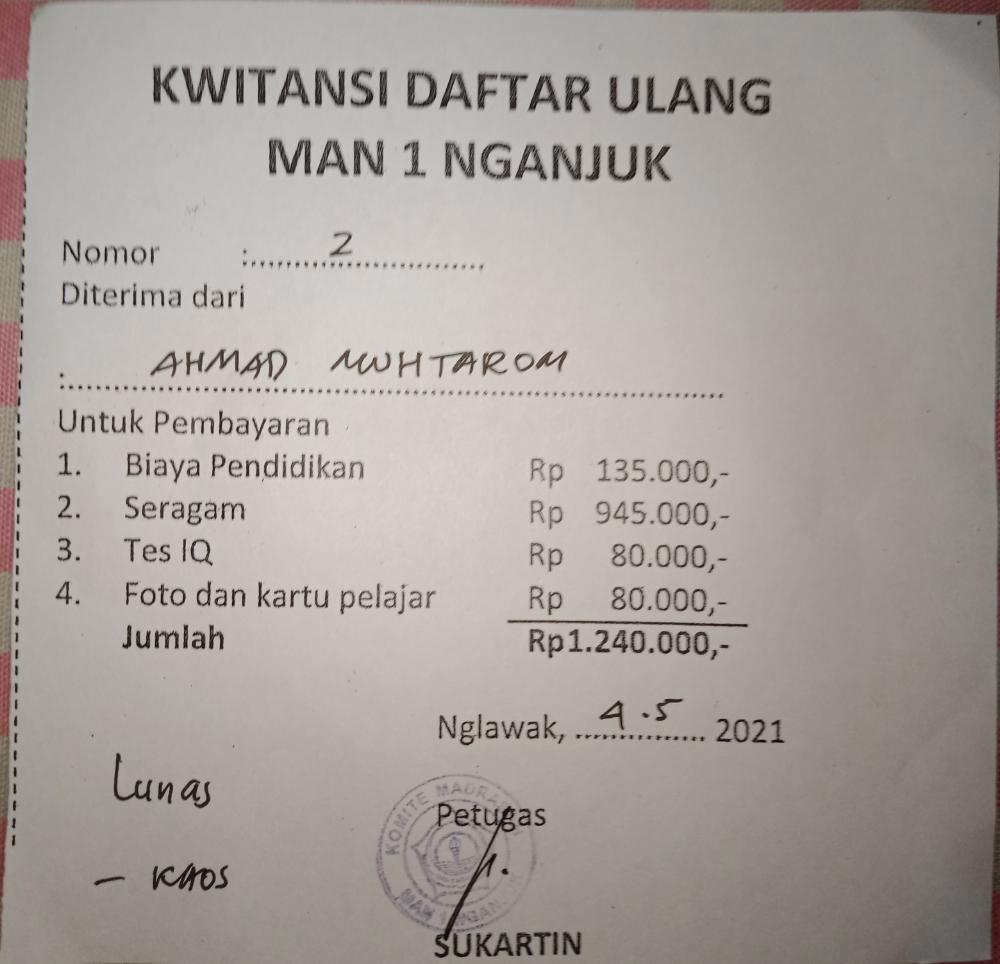 KWITANSI DAFTAR ULANG
MAN 1 NGANJUK
Nomor :............2............
Diterima dari
: AHMAD MUHTAROM
Untuk Pembayaran
1. Biaya Pendidikan Rp 135.000,-
2. Seragam Rp 945.000,-
3. Tes IQ Rp 80.000,-
4. Foto dan kartu pelajar Rp 80.000,-
Jumlah Rp1.240.000,-
Nglawak, 4.5 2021
Lunas
Petugas
KOMITE
MAN 1
- KAOS
SUKARTIN